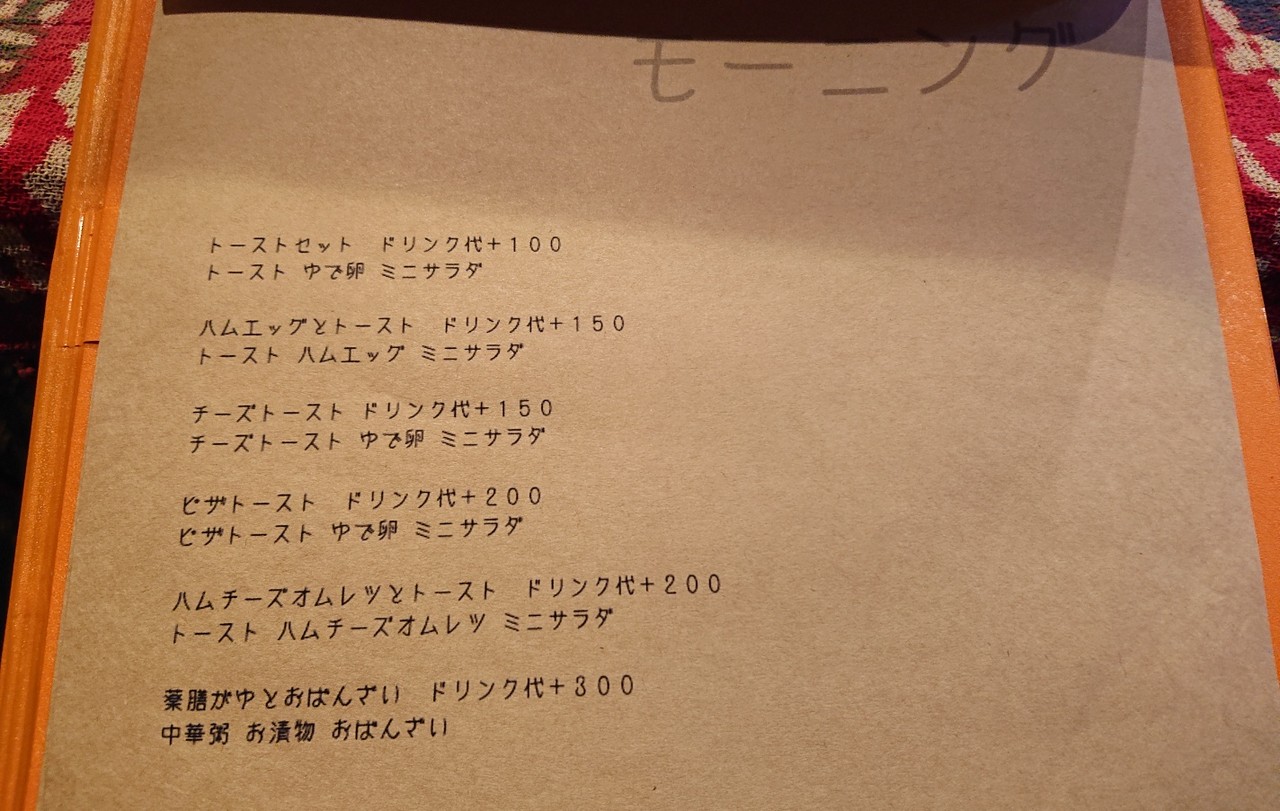 モーニング
トーストセット　ドリンク代+100
トースト ゆで卵 ミニサラダ
ハムエッグとトースト　ドリンク代+150
トースト ハムエッグ ミニサラダ
チーズトースト ドリンク代+150
チーズトースト ゆで卵 ミニサラダ
ピザトースト　ドリンク代+200
ピザトースト ゆで卵 ミニサラダ
ハムチーズオムレツとトースト　ドリンク代+200
トースト ハムチーズオムレツ ミニサラダ
薬膳がゆとおばんざい　ドリンク代+300
中華粥 お漬物 おばんざい